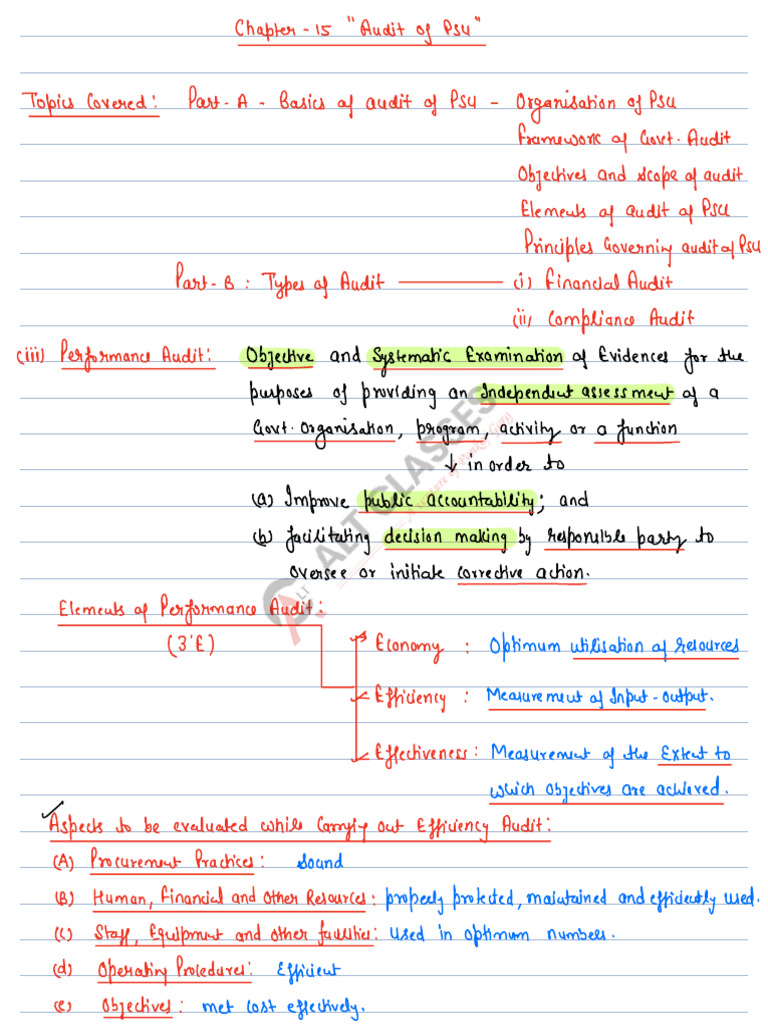 Chapter-15 "Audit of PSU"
Topics Covered: Part-A - Basics of audit of PSU - Organisation of PSU
Framework of Govt. Audit
Objectives and scope of audit
Elements of audit of PSU
Principles Governing audit of PSU
Part-B : Types of Audit (i) Financial Audit
(ii) Compliance Audit
(iii) Performance Audit: Objective and Systematic Examination of Evidences for the
purposes of providing an Independent assessment of a
Govt. Organisation, program, activity or a function
↓ in order to
(a) Improve public accountability; and
(b) facilitating decision making by responsible party to
oversee or initiate corrective action.
ALT CLASSES
ALT
Elements of Performance Audit:
(3'E) Economy : Optimum utilisation of resources
Efficiency : Measurement of Input-output.
Effectiveness: Measurement of the Extent to
which objectives are achieved.
Aspects to be evaluated while Carrying out Efficiency Audit:
(A) Procurement Practices: Sound
(B) Human, Financial and Other Resources: properly protected, maintained and efficiently used.
(C) Staff, Equipment and other facilities: Used in optimum numbers.
(d) Operating Procedures: Efficient
(e) Objectives: met cost effectively.